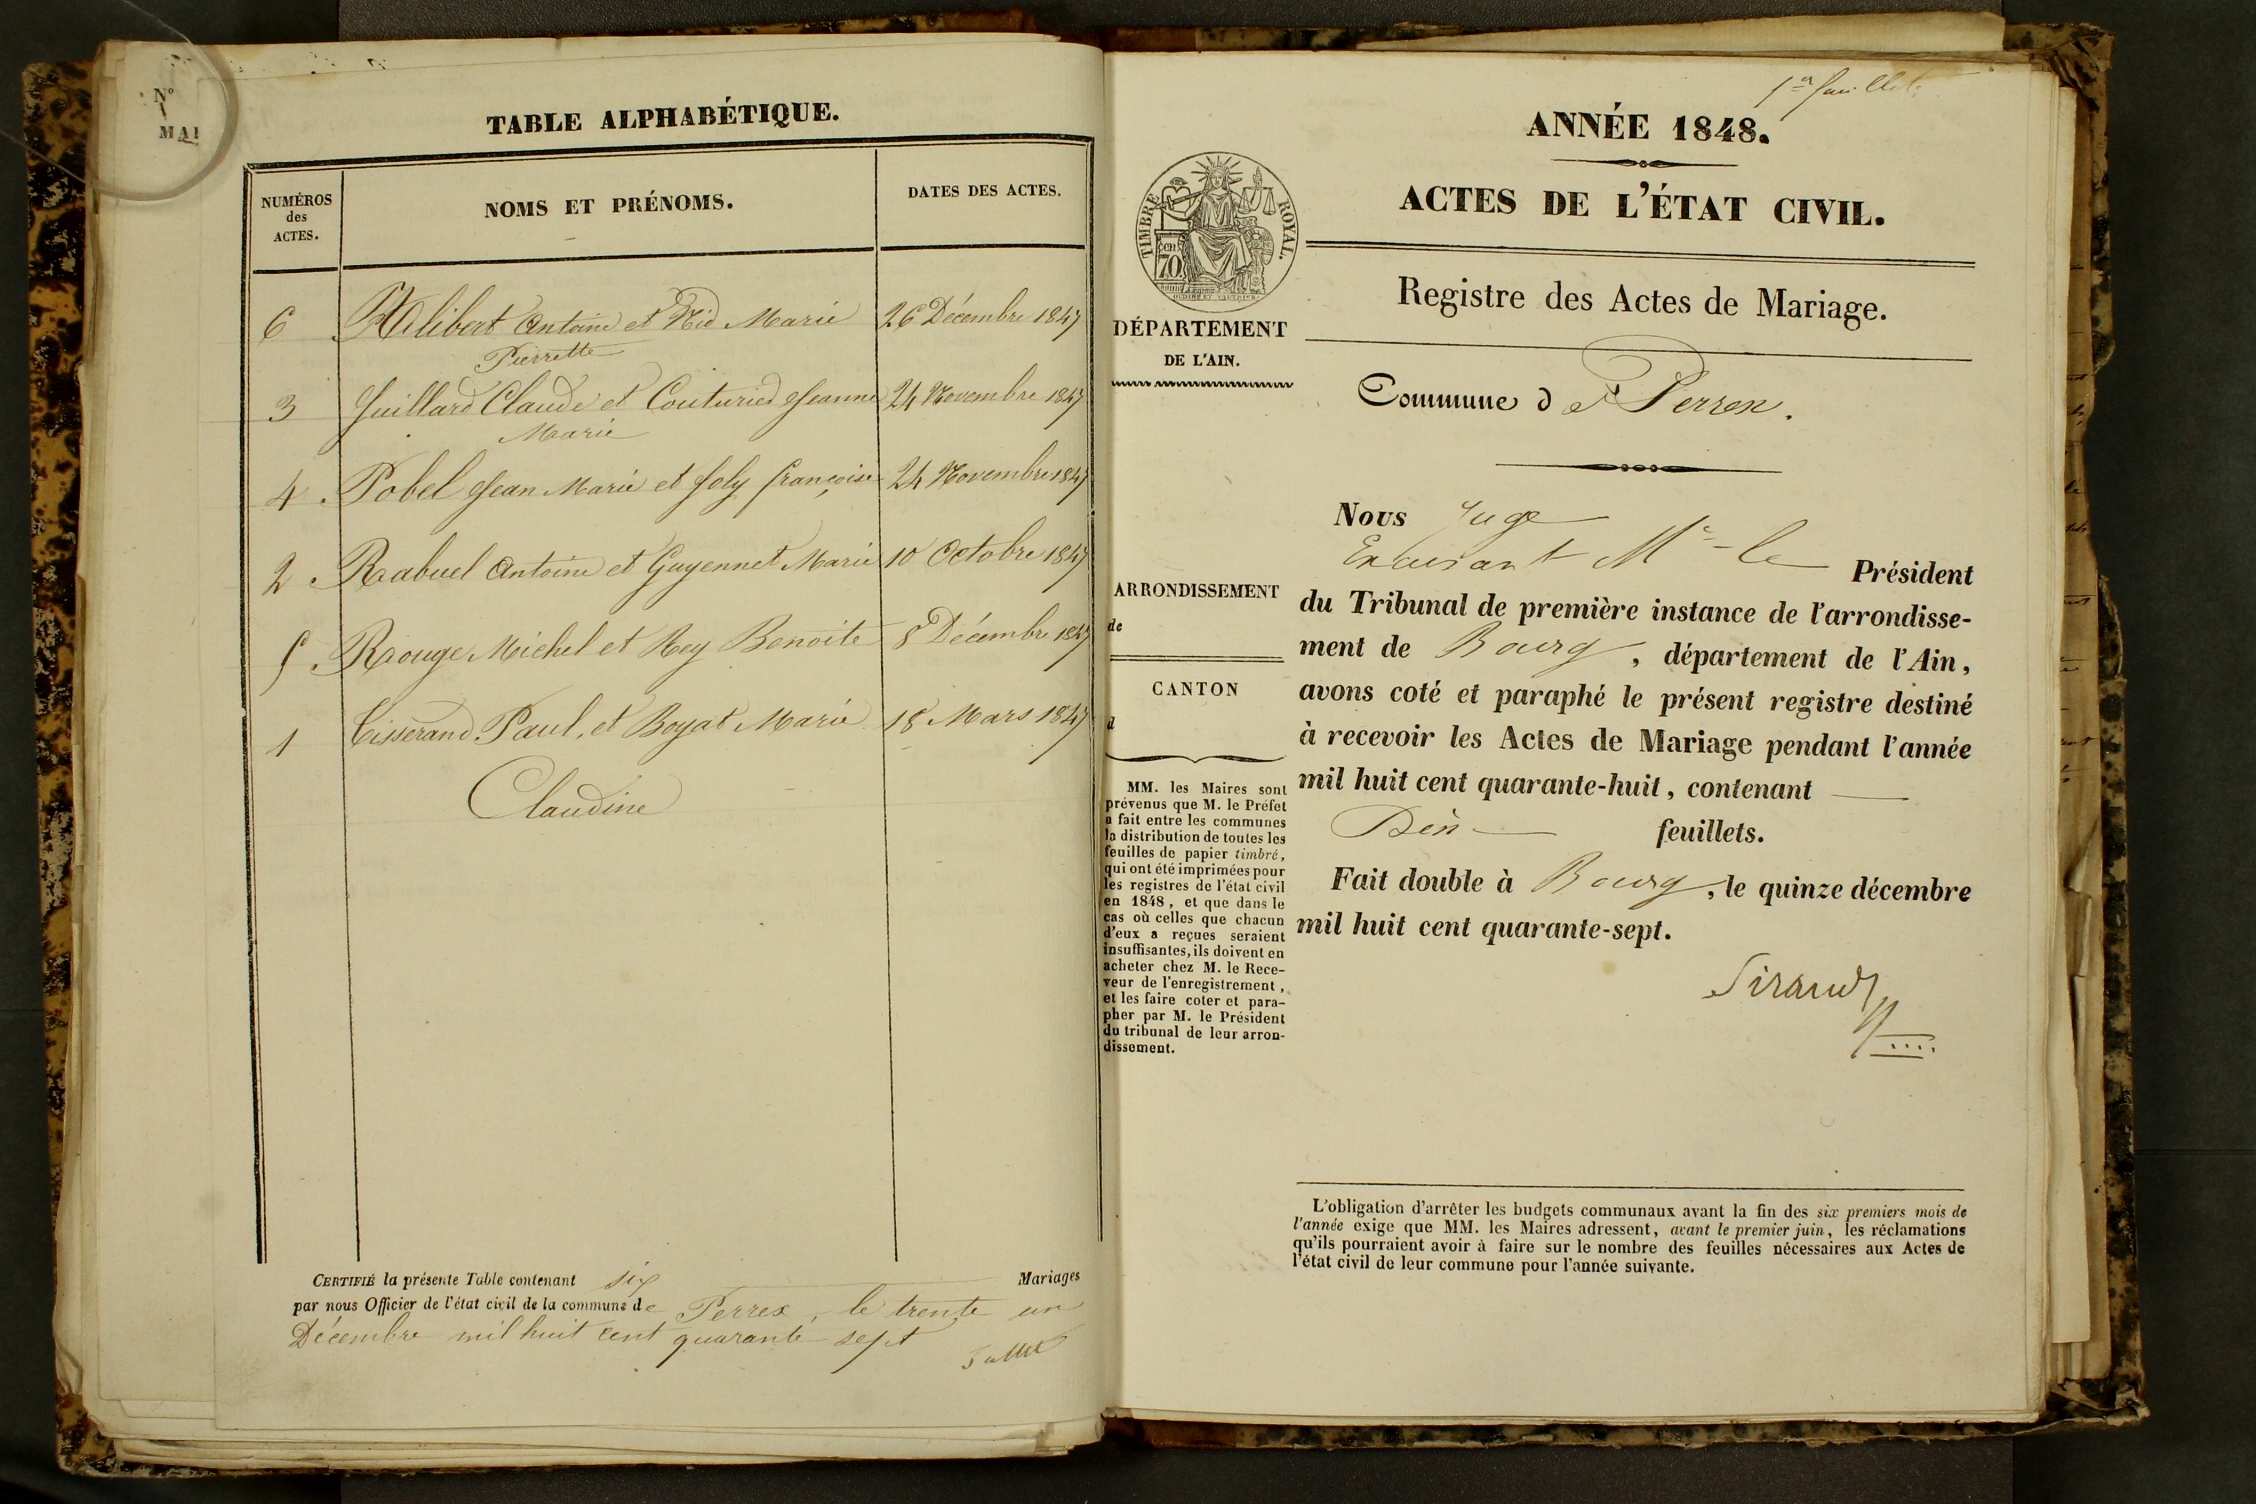 N°
MAI
TABLE ALPHABÉTIQUE.
NUMÉROS
des
ACTES.
NOMS ET PRÉNOMS.
DATES DES ACTES.
6 Alibert Antoine et Nid Marie 26 Décembre 1847
Pierrette
3 Juillard Claude et Couturier Jeanne 24 Novembre 1847
Marie
4 Pobel Jean Marie et Joly françoise 24 Novembre 1847
2 Rabuel Antoine et Guyennet Marie 10 Octobre 1847
5 Rouge Michel et Rey Benoite 8 Décembre 1847
1 Tisserand Paul, et Boyat Marie 18 Mars 1847
Claudine
CERTIFIÉ la présente Table contenant six Mariages
par nous Officier de l'état civil de la commune de Perrex, le trente un
Décembre mil huit cent quarante sept
1er feuillet
ANNÉE 1848.
ACTES DE L'ÉTAT CIVIL.
TIMBRE ROYAL.
cen
70
Registre des Actes de Mariage.
DÉPARTEMENT
DE L'AIN.
Commune de Perrex.
Nous Juge
M le Président
du Tribunal de première instance de l'arrondisse-
ment de Bourg, département de l'Ain,
avons coté et paraphé le présent registre destiné
à recevoir les Actes de Mariage pendant l'année
mil huit cent quarante-huit, contenant
feuillets.
Fait double à Bourg, le quinze décembre
mil huit cent quarante-sept.
Sirand
ARRONDISSEMENT
de
CANTON
d
MM. les Maires sont
prévenus que M. le Préfet
a fait entre les communes
la distribution de toutes les
feuilles de papier timbré,
qui ont été imprimées pour
les registres de l'état civil
en 1848, et que dans le
cas où celles que chacun
d'eux a reçues seraient
insuffisantes, ils doivent en
acheter chez M. le Rece-
veur de l'enregistrement,
et les faire coter et para-
pher par M. le Président
du tribunal de leur arron-
dissement.
L'obligation d'arrêter les budgets communaux avant la fin des six premiers mois de
l'année exige que MM. les Maires adressent, avant le premier juin, les réclamations
qu'ils pourraient avoir à faire sur le nombre des feuilles nécessaires aux Actes de
l'état civil de leur commune pour l'année suivante.